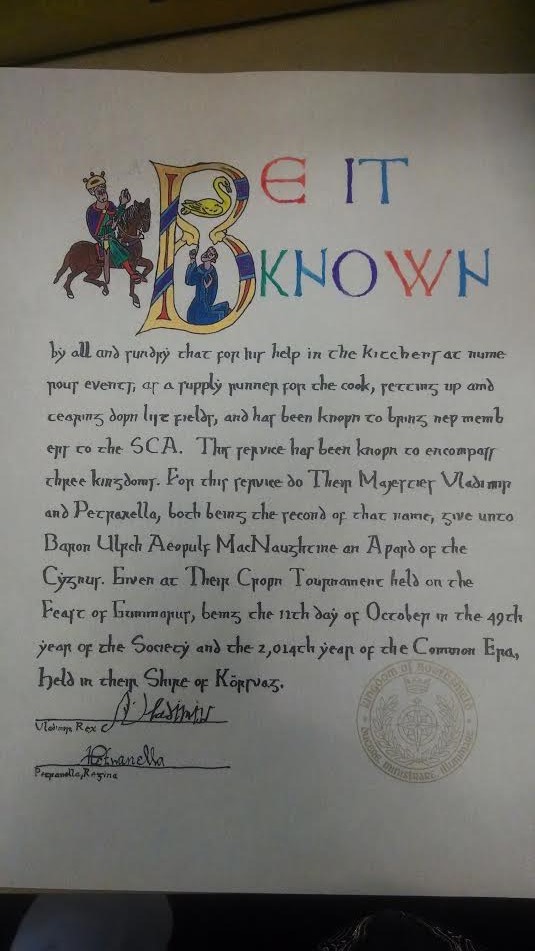 BE IT
KNOWN
by all and sundry that for his help in the kitchens at nume
rous events, as a supply runner for the cook, setting up and
tearing down list fields, and has been known to bring new memb
ers to the SCA. This service has been known to encompass
three kingdoms. For this service do Their Majesties Vladimir
and Petranella, both being the second of that name, give unto
Baron Ulrich Aeowulf MacNaughtine an Award of the
Cygnus. Given at Their Crown Tournament held on the
Feast of Gummarus, being the 11th day of October in the 49th
year of the Society and the 2,014th year of the Common Era,
held in their Shire of Körsvag.
Vladimir
Vladimir, Rex
Petranella
Petranella, Regina
Kingdom of Northshield
MINISTRARE